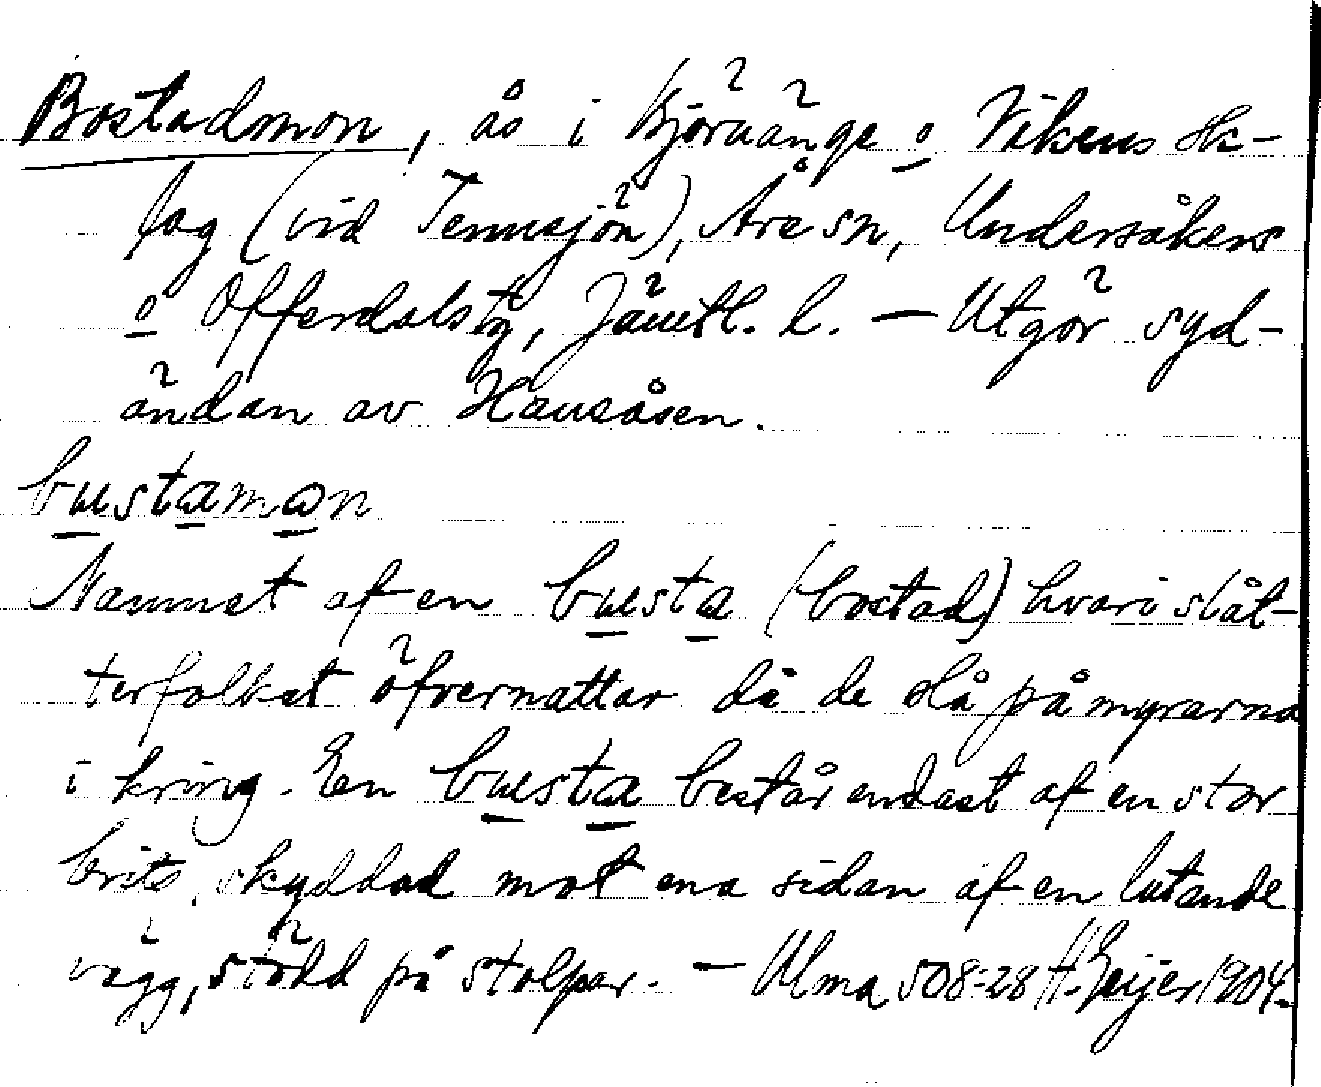 Bostadmon, ås i Björnänge o Vikens sk-
lag (vid Tennsjön), Åre sn, Undersåkers
o Offerdals tg, Jämtl. l. — Utgör syd-
ändan av Hansåsen.
bustamon
Namnet af en busta (bostad) hvari slåt-
terfolket öfvernattar då de slå på myrarna
i kring. En busta består endast af en stor
brits, skyddad mot ena sidan af en lutande
vägg, stödd på stolpar. — Ulma 508:28 H. Geijer 1904.